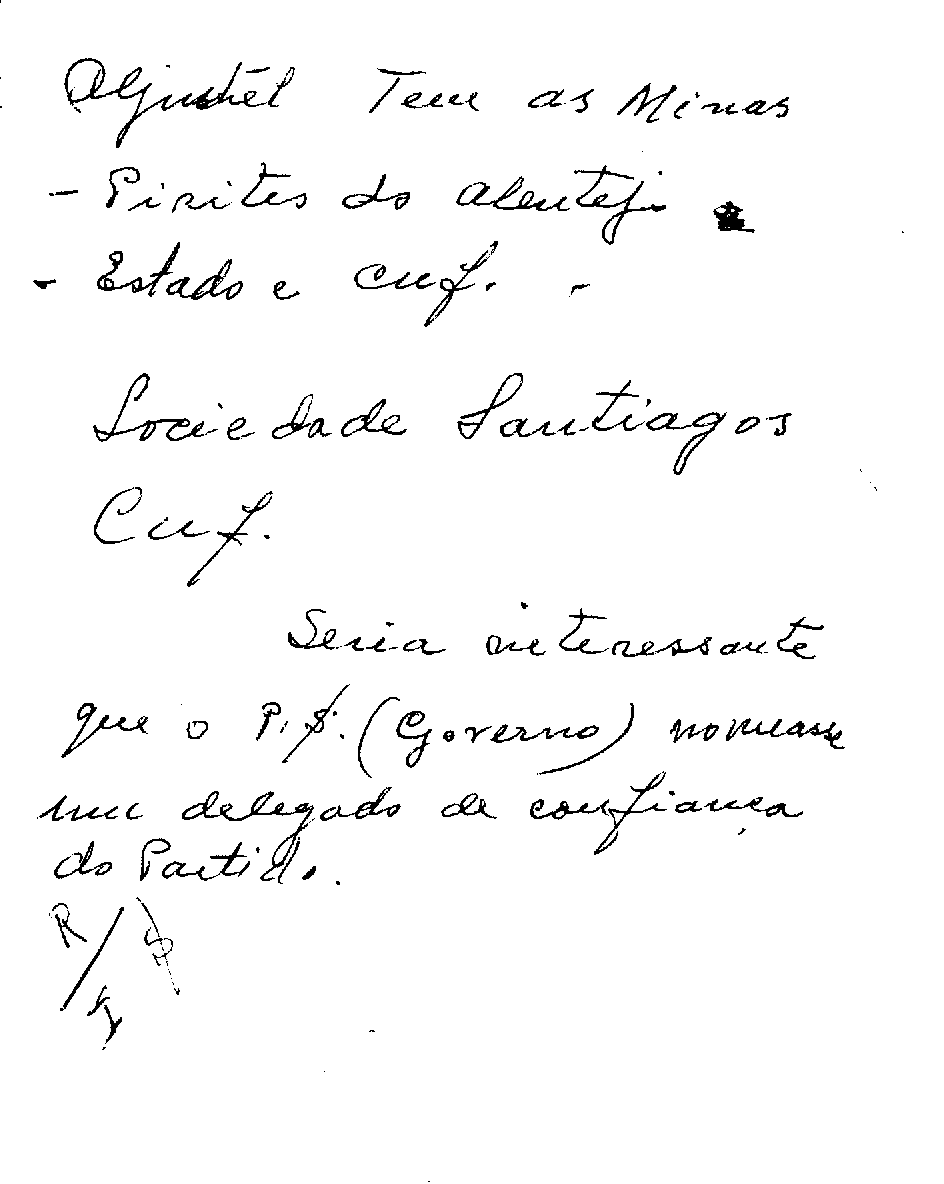 Aljustrel Tem as Minas
- Pirites do Alentejo
- Estado e Cuf. -
Sociedade Santiagos
Cuf.
Seria interessante
que o P.S. (Governo) nomeasse
um delegado de confiança
do Partido.